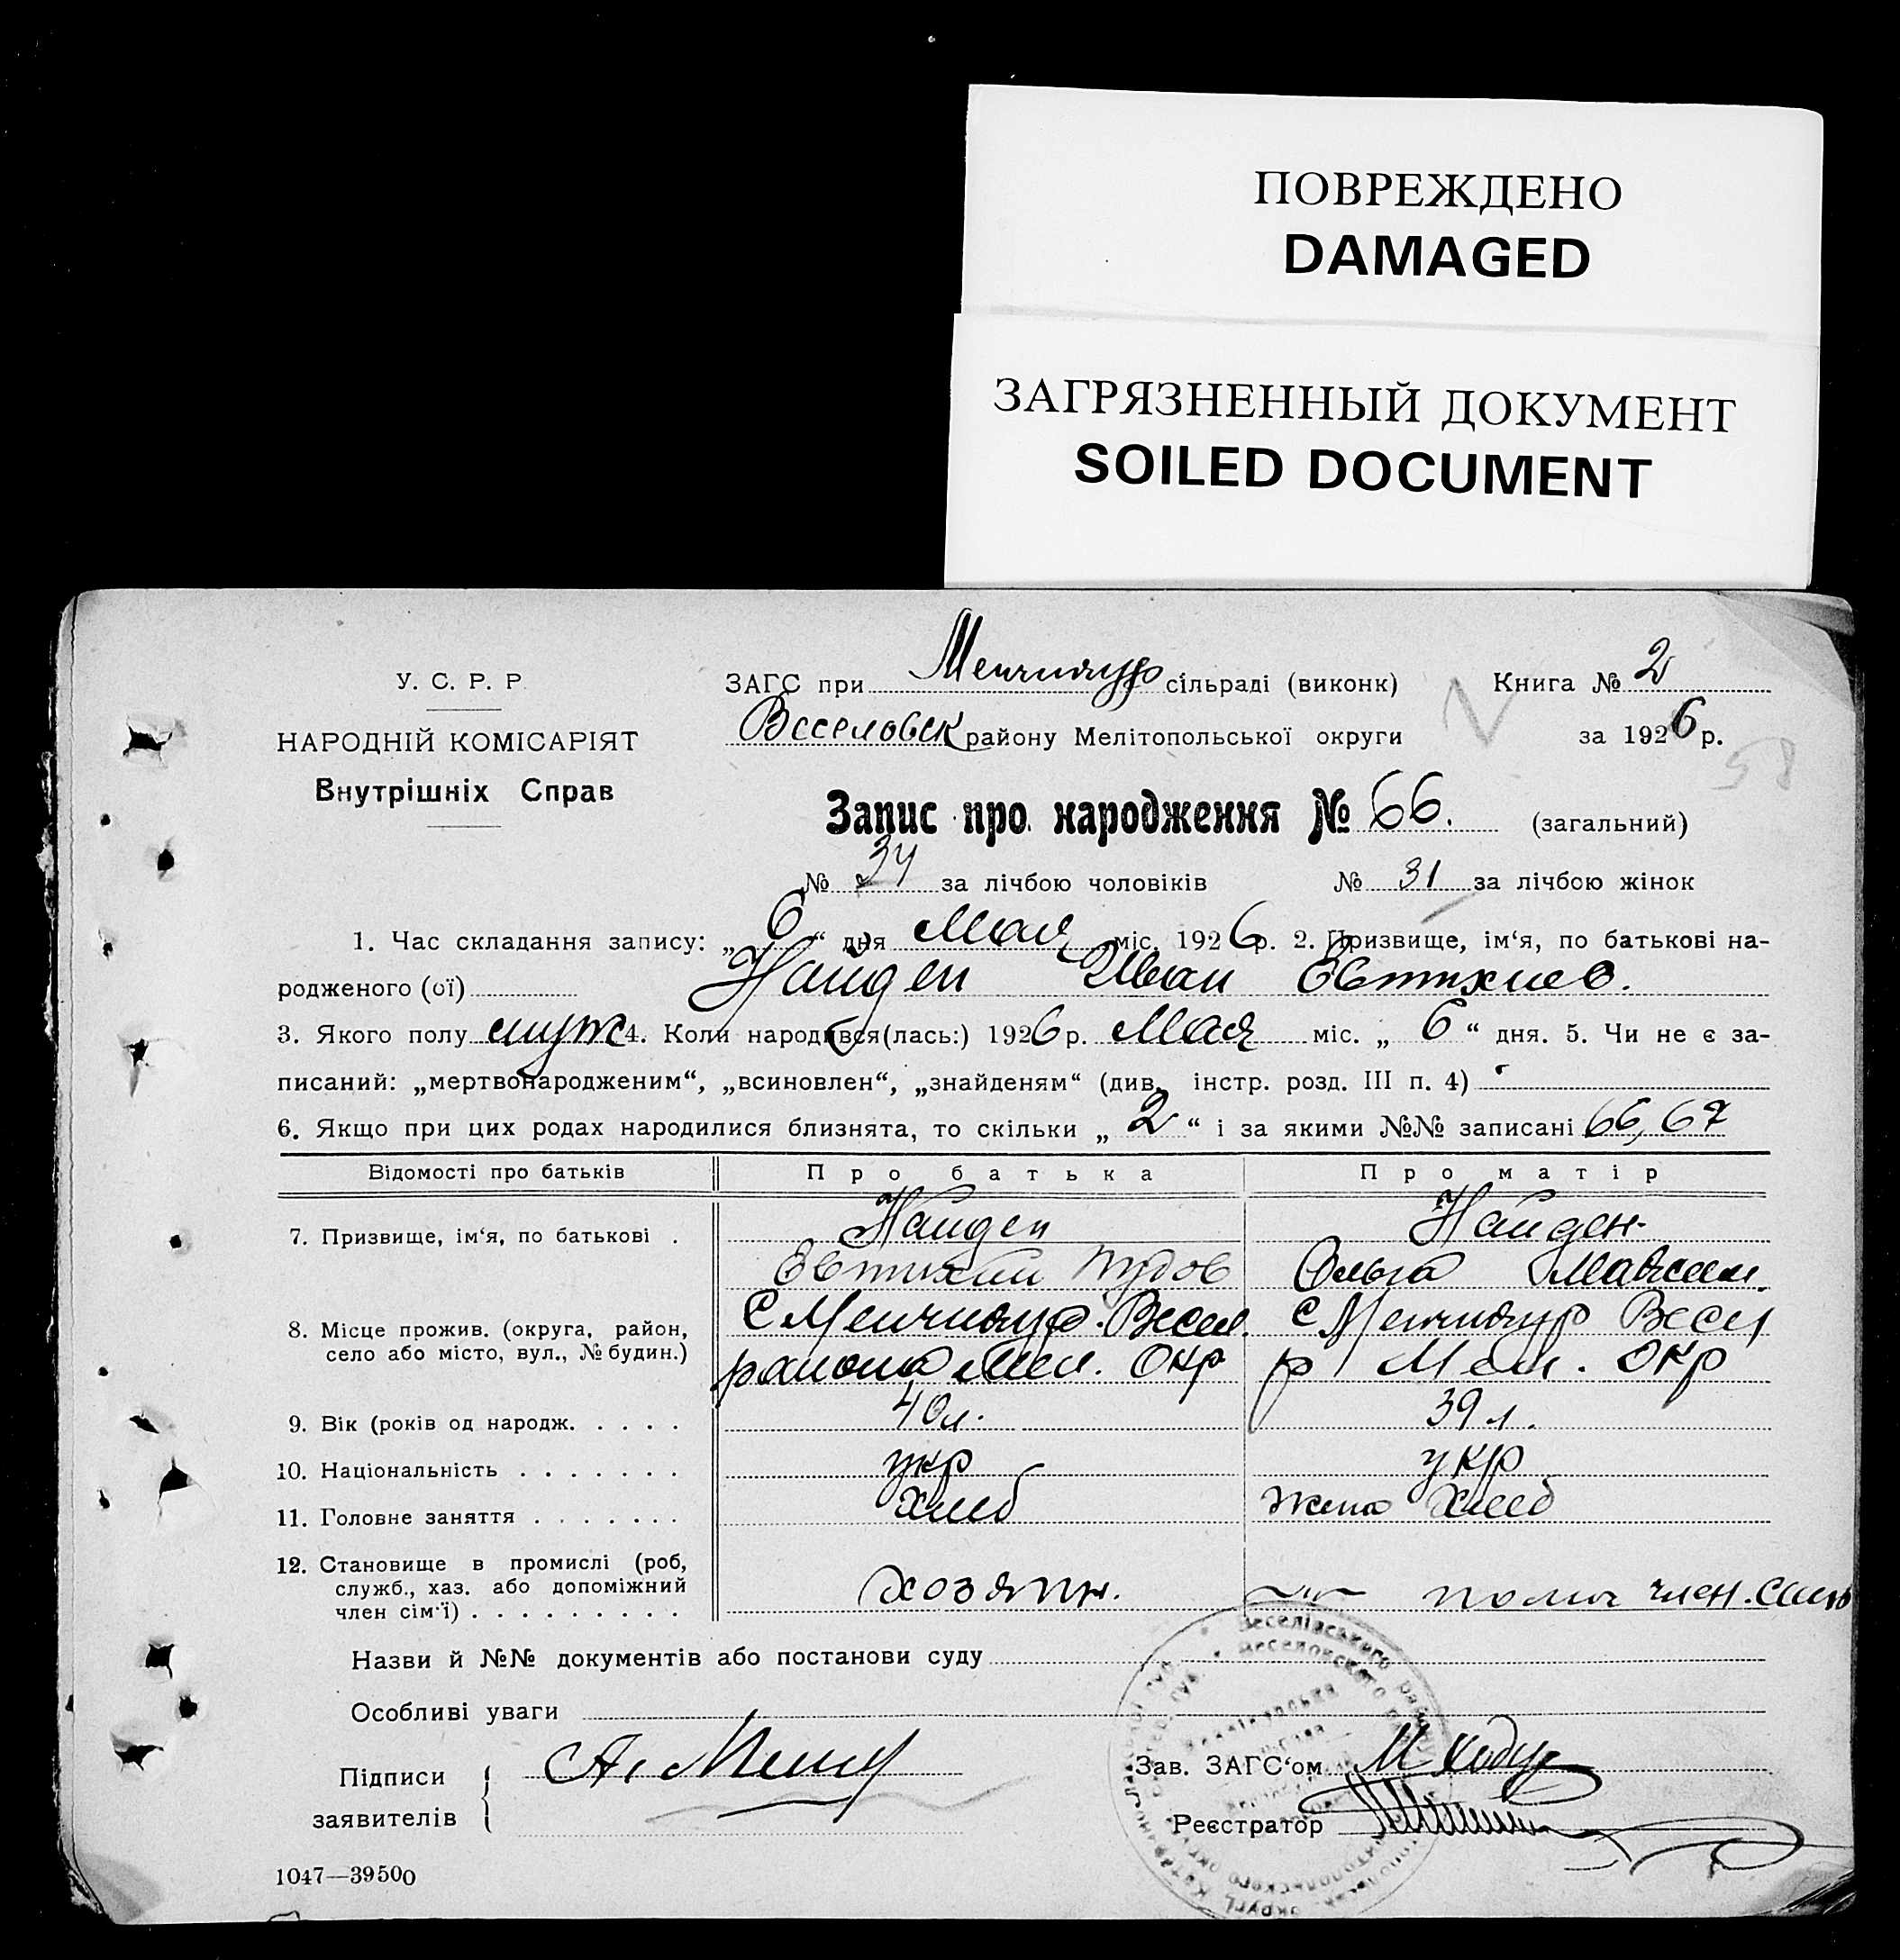 ПОВРЕЖДЕНО
DAMAGED
ЗАГРЯЗНЕННЫЙ ДОКУМЕНТ
SOILED DOCUMENT
У. С. Р. Р.
НАРОДНІЙ КОМІСАРІЯТ
Внутрішніх Справ
ЗАГС при Менчикур сільраді (виконк) Книга № 2
Веселовск району Мелітопольської округи за 1926 р.
58
Запис про народження № 66. (загальний)
№ 34 за лічбою чоловіків № 31 за лічбою жінок
1. Час складання запису: „6“ дня Мая міс. 1926 р. 2. Призвище, ім‘я, по батькові на-
родженого (ої) Найден Иван Евтихиев.
3. Якого полу муж 4. Коли народився(лась:) 1926 р. Мая міс. „6“ дня. 5. Чи не є за-
писаний: „мертвонародженим“, „всиновлен“, „знайденям“ (див. інстр. розд. III п. 4)
6. Якщо при цих родах народилися близнята, то скільки „2“ і за якими №№ записані 66, 67
Відомості про батьків Про батька Про матір
7. Призвище, ім‘я, по батькові . Найден Найден
Евтихий Пудов Ольга Максим.
8. Місце прожив. (округа, район, село або місто, вул., № будин.) С Менчикур. Весел. с Менчикур Весел
района Мел. Окр р Мел. Окр
9. Вік (років од народж. . . . . 40 л. 39 л.
10. Національність . . . . . . . укр укр
11. Головне заняття . . . . . . . хлеб жена хлеб
12. Становище в промислі (роб, служб., хаз. або допоміжний член сім‘ї) . . . . . . . . . хозяин. член.
Назви й №№ документів або постанови суду
Особливі уваги
Підписи заявителів
Зав. ЗАГС‘ом
Реєстратор
1047—39500